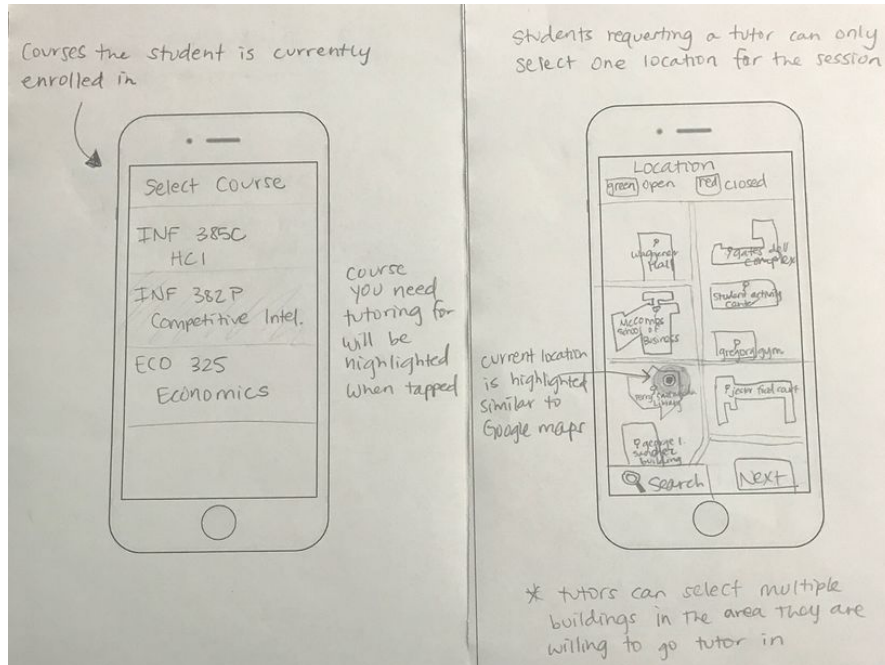 Courses the student is currently
enrolled in
Select Course
INF 385C
HCI
INF 382P
Competitive Intel.
ECO 325
Economics
course
you need
tutoring for
will be
highlighted
when tapped
Students requesting a tutor can only
select one location for the session
Location
green open red closed
Hall
gates dell
complex
Student activity
center
McCombs
School of
Business
gregory gym
current location
is highlighted
similar to
Google maps
jester food court
george I.
building
Search
Next
* tutors can select multiple
buildings in the area they are
willing to go tutor in